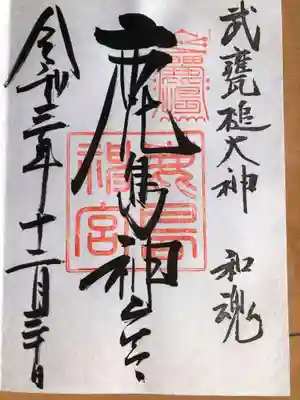 武甕槌大神 和魂
鹿島神宮
鹿島神宮
令和三年十二月三十日